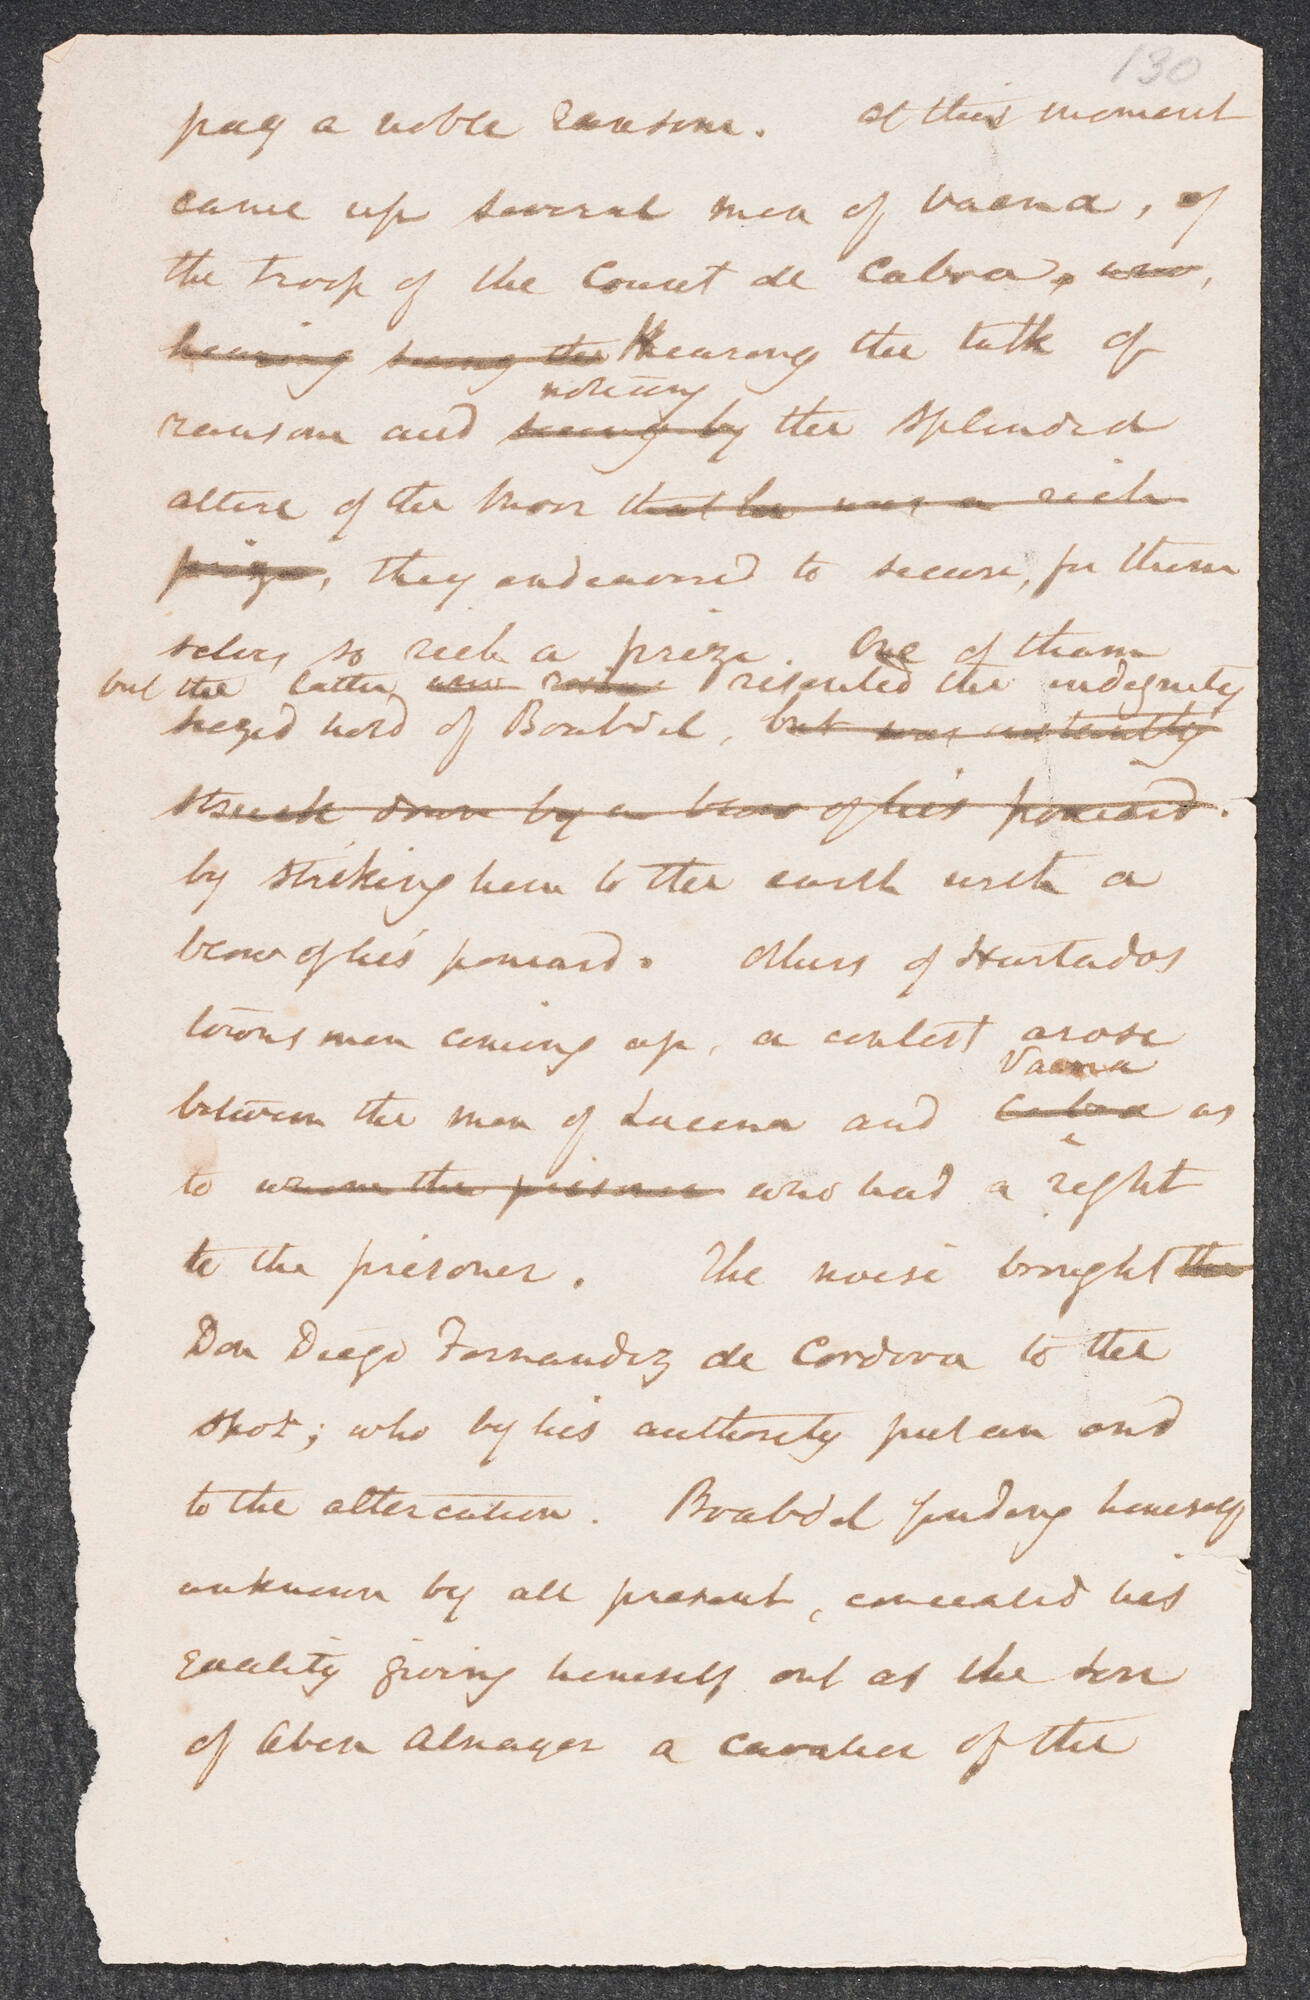 130
pay a noble ransom. At this moment
came up several men of Vaena, of
the troop of the Count de Cabra, who,
hearing seeing the Hearing the talk of
noticing
ransom and seeing by the splendid
attire of the Moor that he was a rich
prize, they endeavored to secure, for them
selves so rich a prize. One of them
but the latter resented the indignity
siezed hold of Boabdil, but was instantly
struck down by a blow of his poniard.
by striking him to the earth with a
blow of his poniard. Others of Hurtados
townsmen coming up, a contest arose
Vaena
between the men of Lucena and Cabra as
to whom the prisoner who had a right
to the prisoner. The noise brought the
Don Diego Fernandez de Cordova to the
spot; who by his authority put an end
to the altercation. Boabdil finding himself
unknown by all present, concealed his
quality giving himself out as the son
of Aben Alnayer a cavalier of the